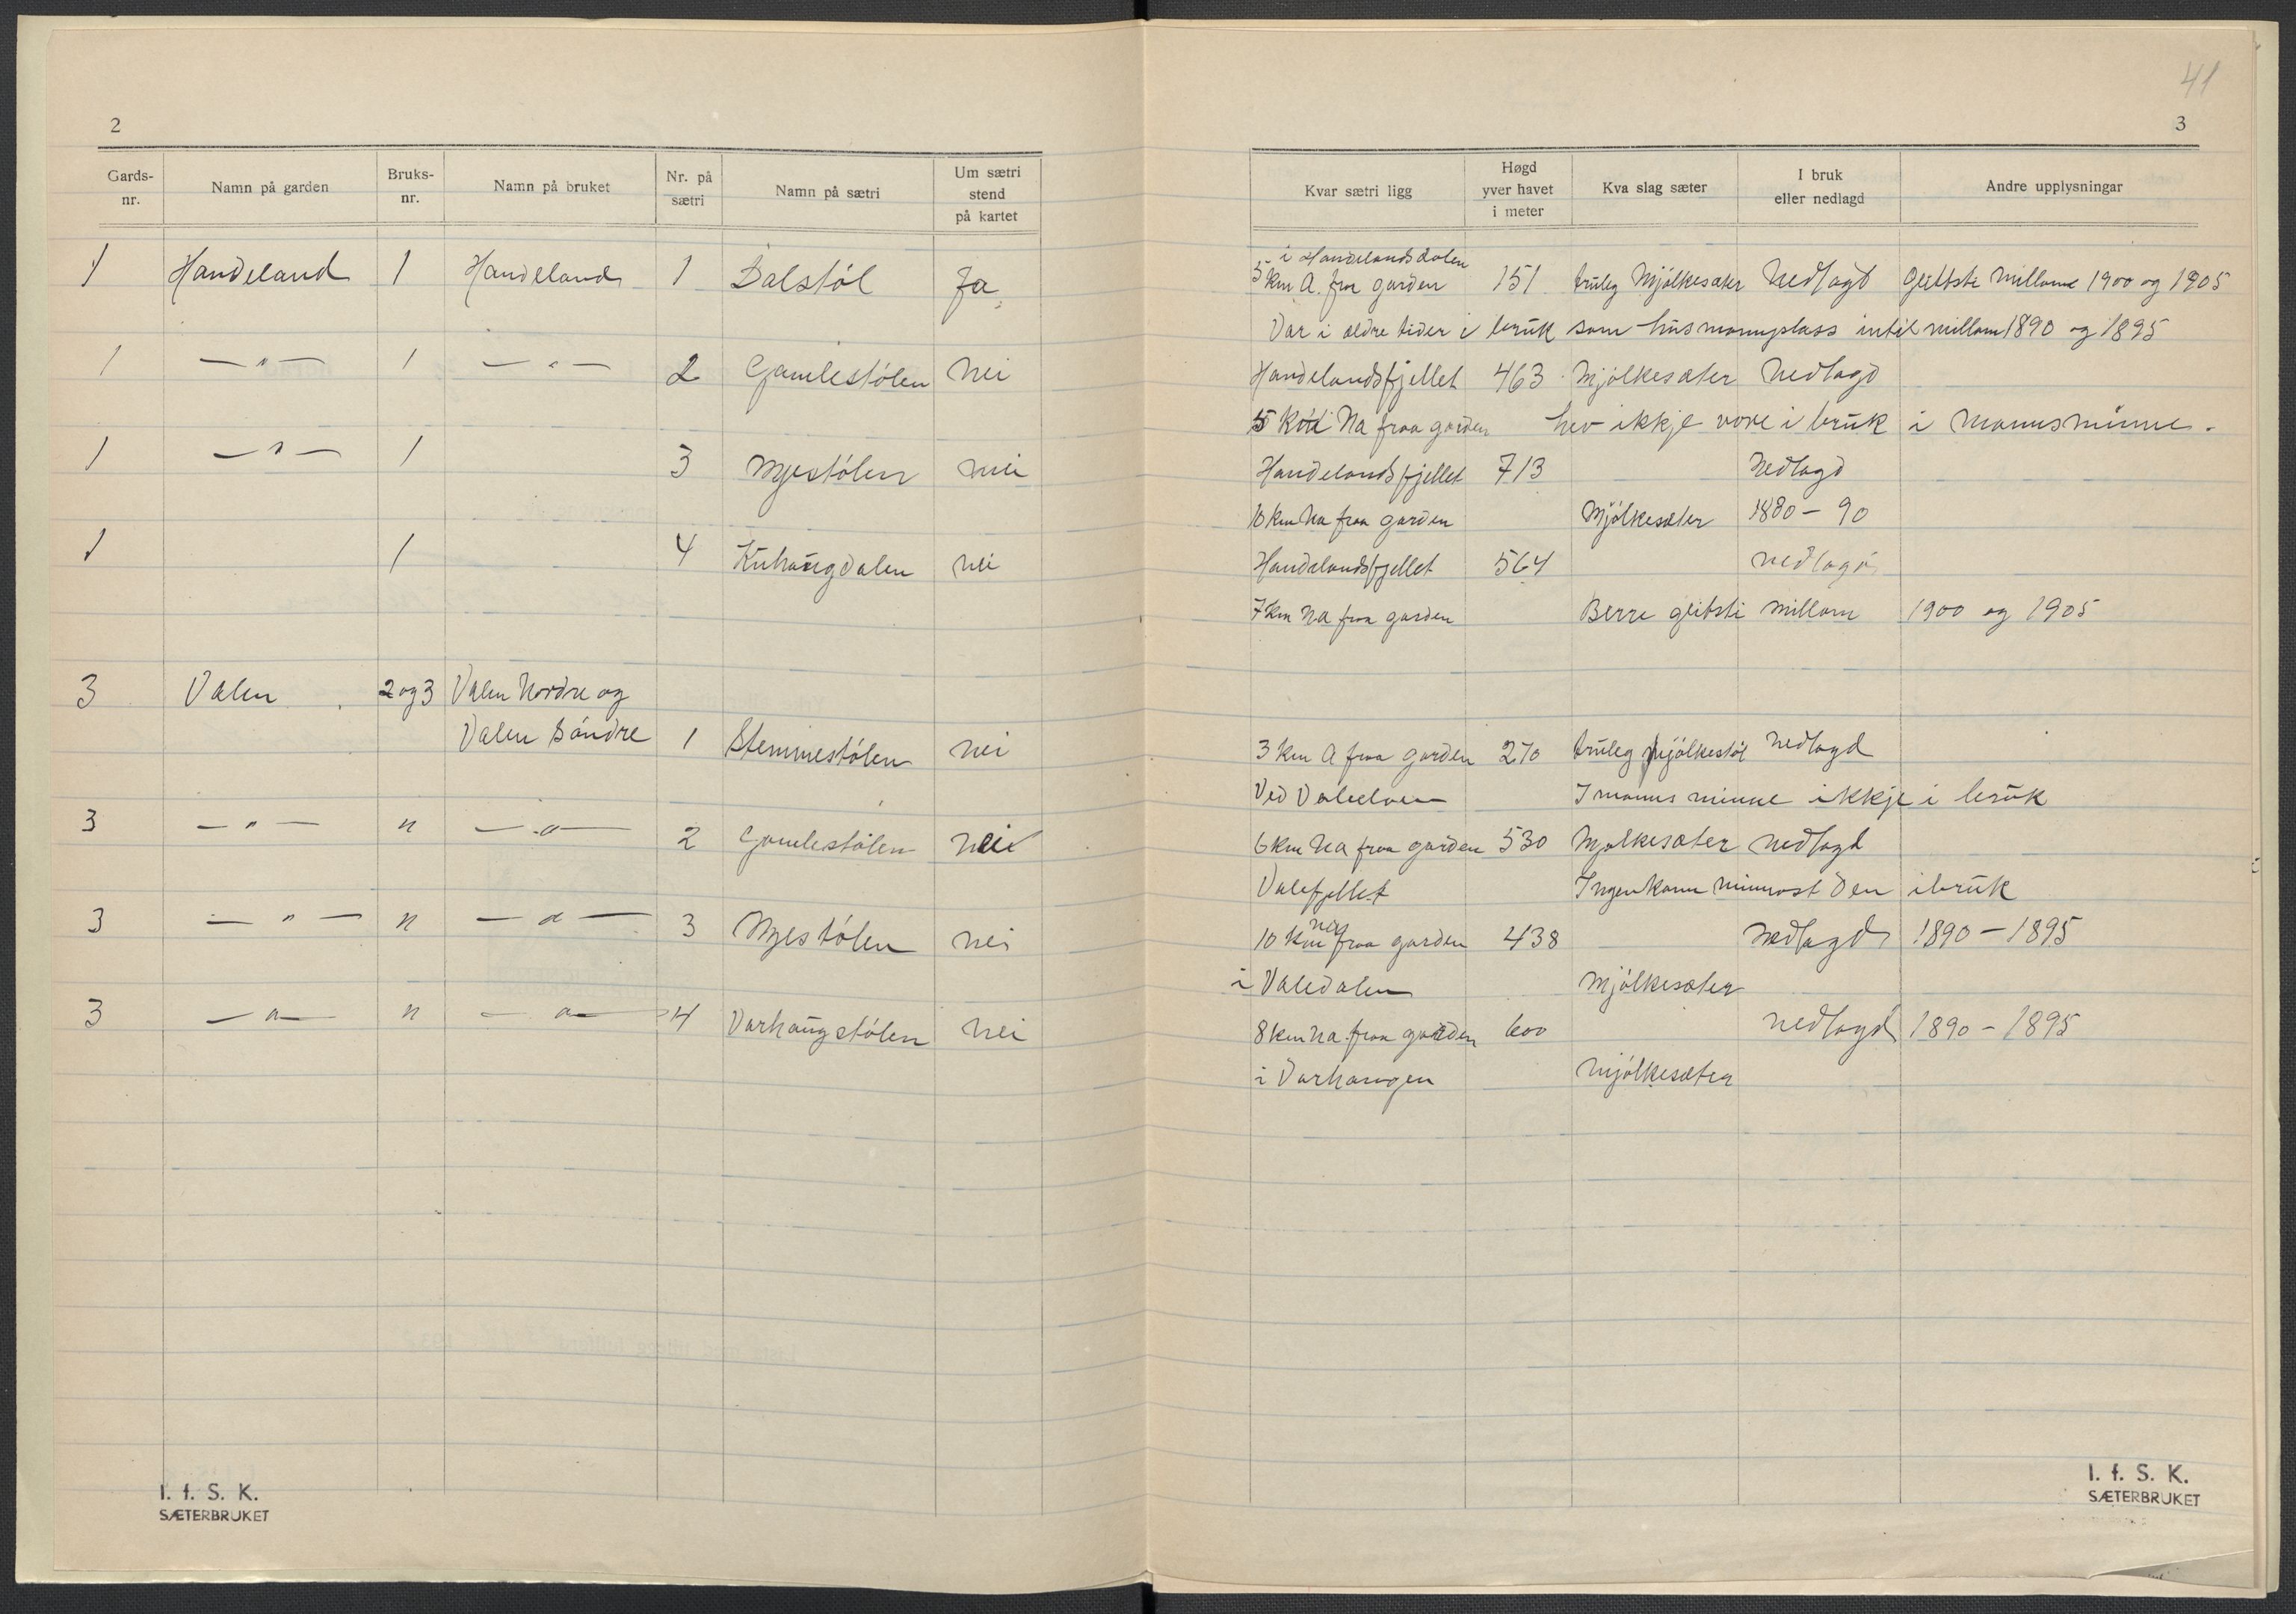 41
2
3
Gards-nr. Namn på garden Bruks-nr. Namn på bruket Nr. på sætri Namn på sætri Um sætri stend på kartet
Kvar sætri ligg Høgd yver havet i meter Kva slag sæter I bruk eller nedlagd Andre upplysningar
i Handelandsdalen
1 Handeland 1 Handeland 1 Dalstøl Ja 5 km A. fra garden 151 truleg Mjølkesæter Nedlagd millom 1900 og 1905
Var i ældre tider i bruk som husmannsplass intil millom 1890 og 1895
1 — " — 1 — " — 2 Gamlestølen Nei Handelandsfjellet 463 Mjølkesæter Nedlagd
5 km NA fraa garden hev ikkje vore i bruk i Mannsminne.
1 — " — 1 3 Nyestølen nei Handelandsfjellet 713 Nedlagd
10 km NA fraa garden Mjølkesæter 1880 - 90
1 1 4 Kuhaugdalen nei Handelandsfjellet 564 nedlagd
7 km NA fraa garden Berre millom 1900 og 1905
3 Valen 2 og 3 Valen Nordre og
Valen Søndre 1 Stemmestølen nei 3 km A fraa garden 270 truleg mjølkestøl nedlagd
Ved I manns minne ikkje i bruk
3 — " — " — " — 2 Gamlestølen nei 6 km NA fraa garden 530 Mjølkesæter nedlagd
Valefjellet Ingen kann minnast den i bruk
3 — " — " — " — 3 Nyestølen nei 10 km NA fraa garden 438 nedlagd 1890 - 1895
i Valedalen Mjølkesæter
3 — " — " — " — 4 Varhaugstølen nei 8 km NA fraa garden 600 nedlagd 1890 - 1895
i Varhaugen Mjølkesæter
I. f. S. K.
SÆTERBRUKET
I. f. S. K.
SÆTERBRUKET